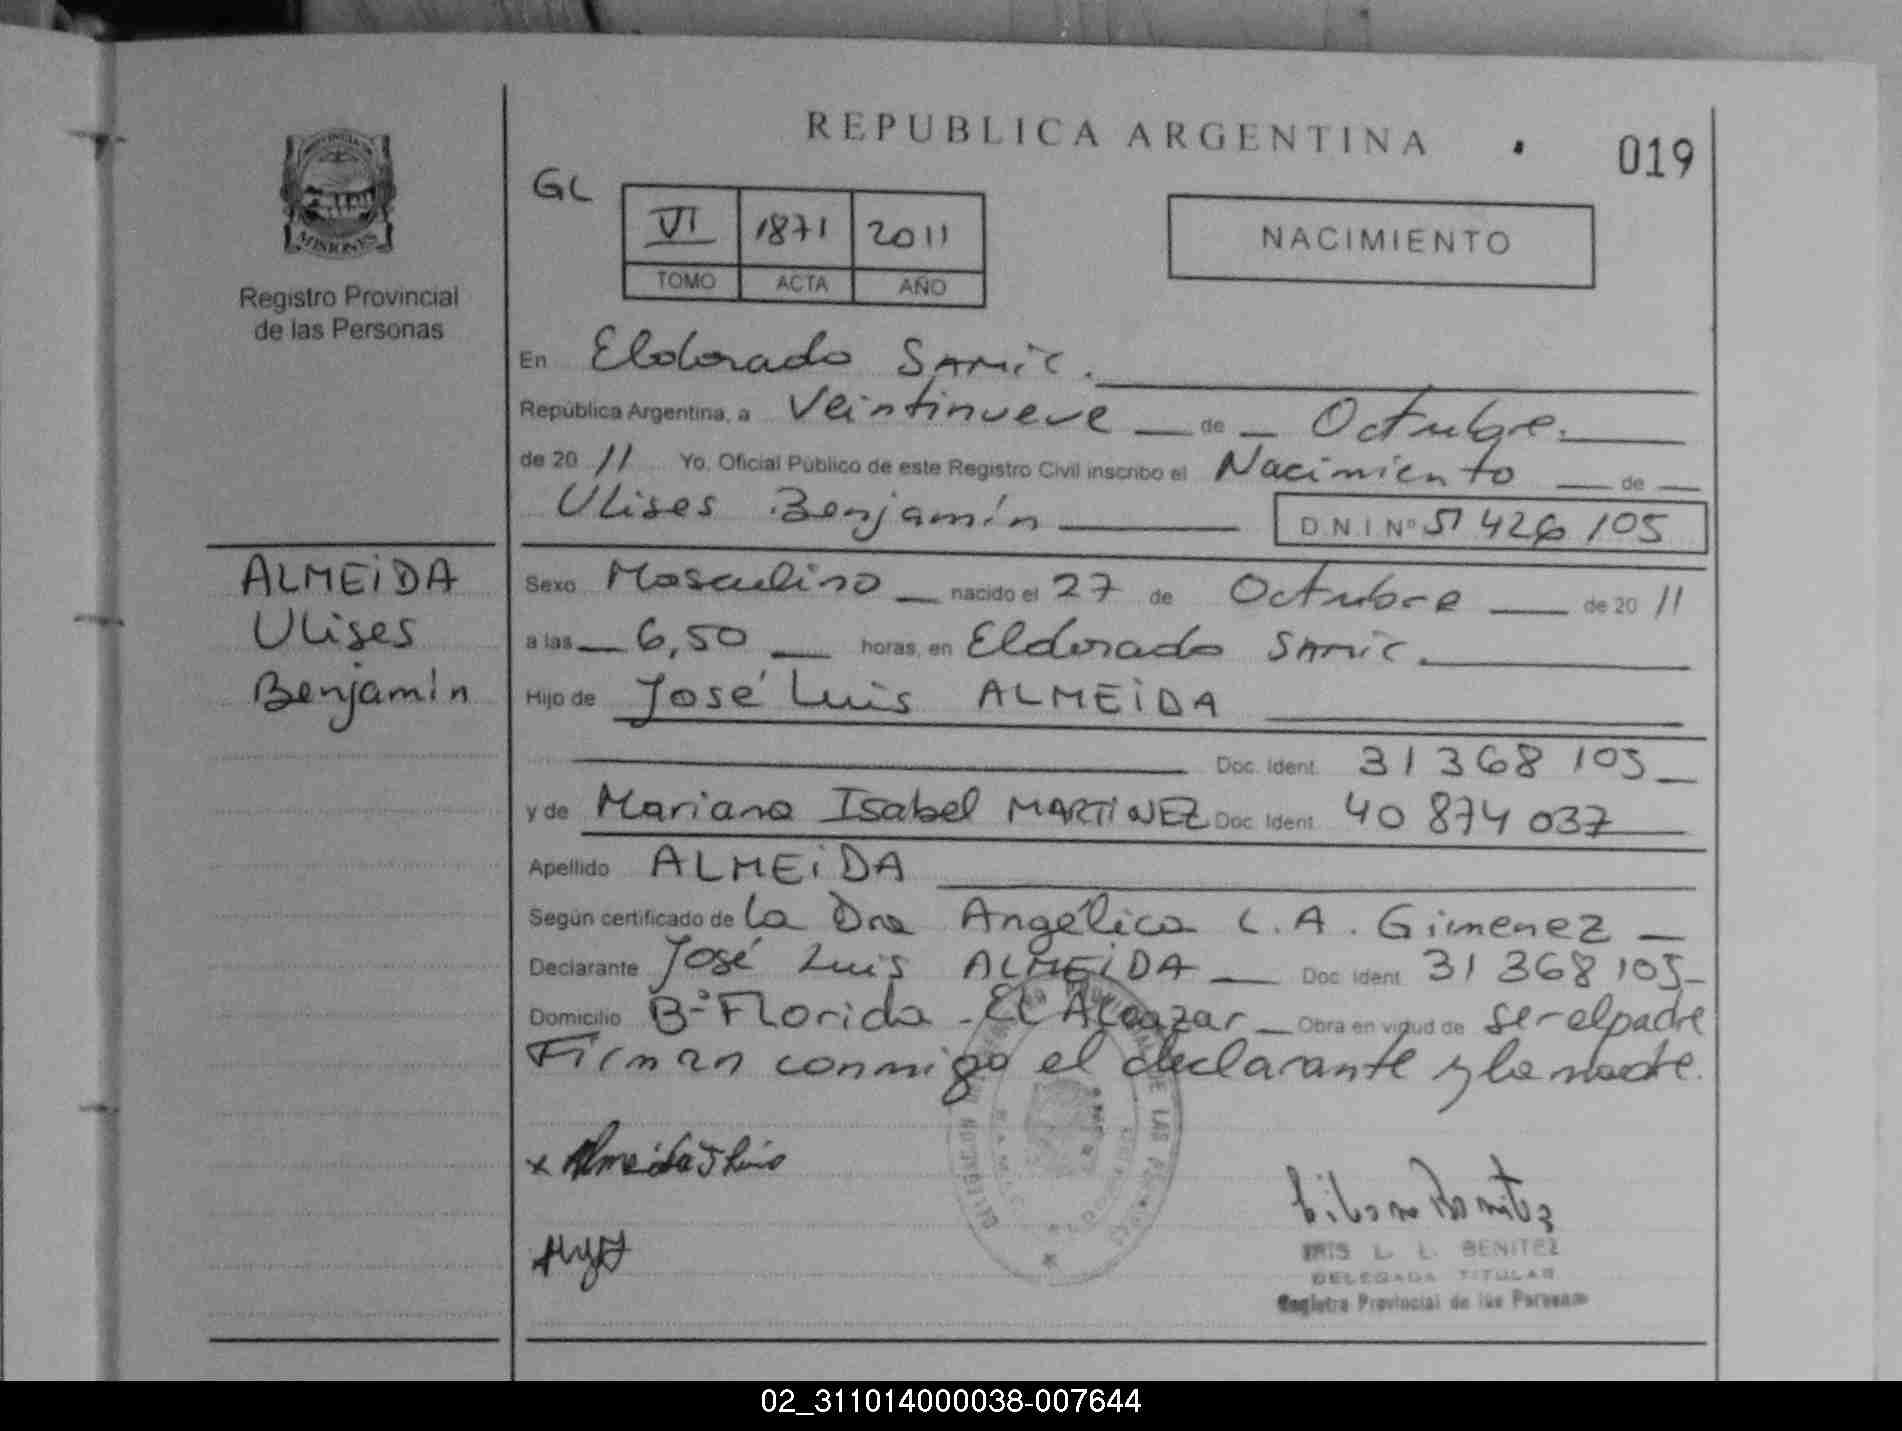 REPUBLICA ARGENTINA
019
GL
VI 1871 2011
TOMO ACTA AÑO
NACIMIENTO
MISIONES
Registro Provincial
de las Personas
En Eldorado SAMIC.
República Argentina, a Veintinueve de Octubre.
de 20 11 Yo, Oficial Público de este Registro Civil inscribo el Nacimiento de
Ulises Benjamín D.N.I Nº 51 426 105
ALMEIDA
Ulises
Benjamín
Sexo Masculino nacido el 27 de Octubre de 20 11
a las 6,50 horas, en Eldorado SAMIC.
Hijo de José Luis ALMEIDA
Doc. Ident. 31 368 105
y de Mariana Isabel MARTINEZ Doc. Ident. 40 874 037
Apellido ALMEIDA
Según certificado de la Dra Angélica L. A. Gimenez
Declarante José Luis ALMEIDA Doc. Ident. 31 368 105
Domicilio Bº Florida - El Alcazar Obra en virtud de ser el padre
Firman conmigo el declarante y la madre.
x Almeida J Luis
IRIS L. L. BENITEZ
DELEGADA TITULAR
Registro Provincial de las Personas
02_311014000038-007644